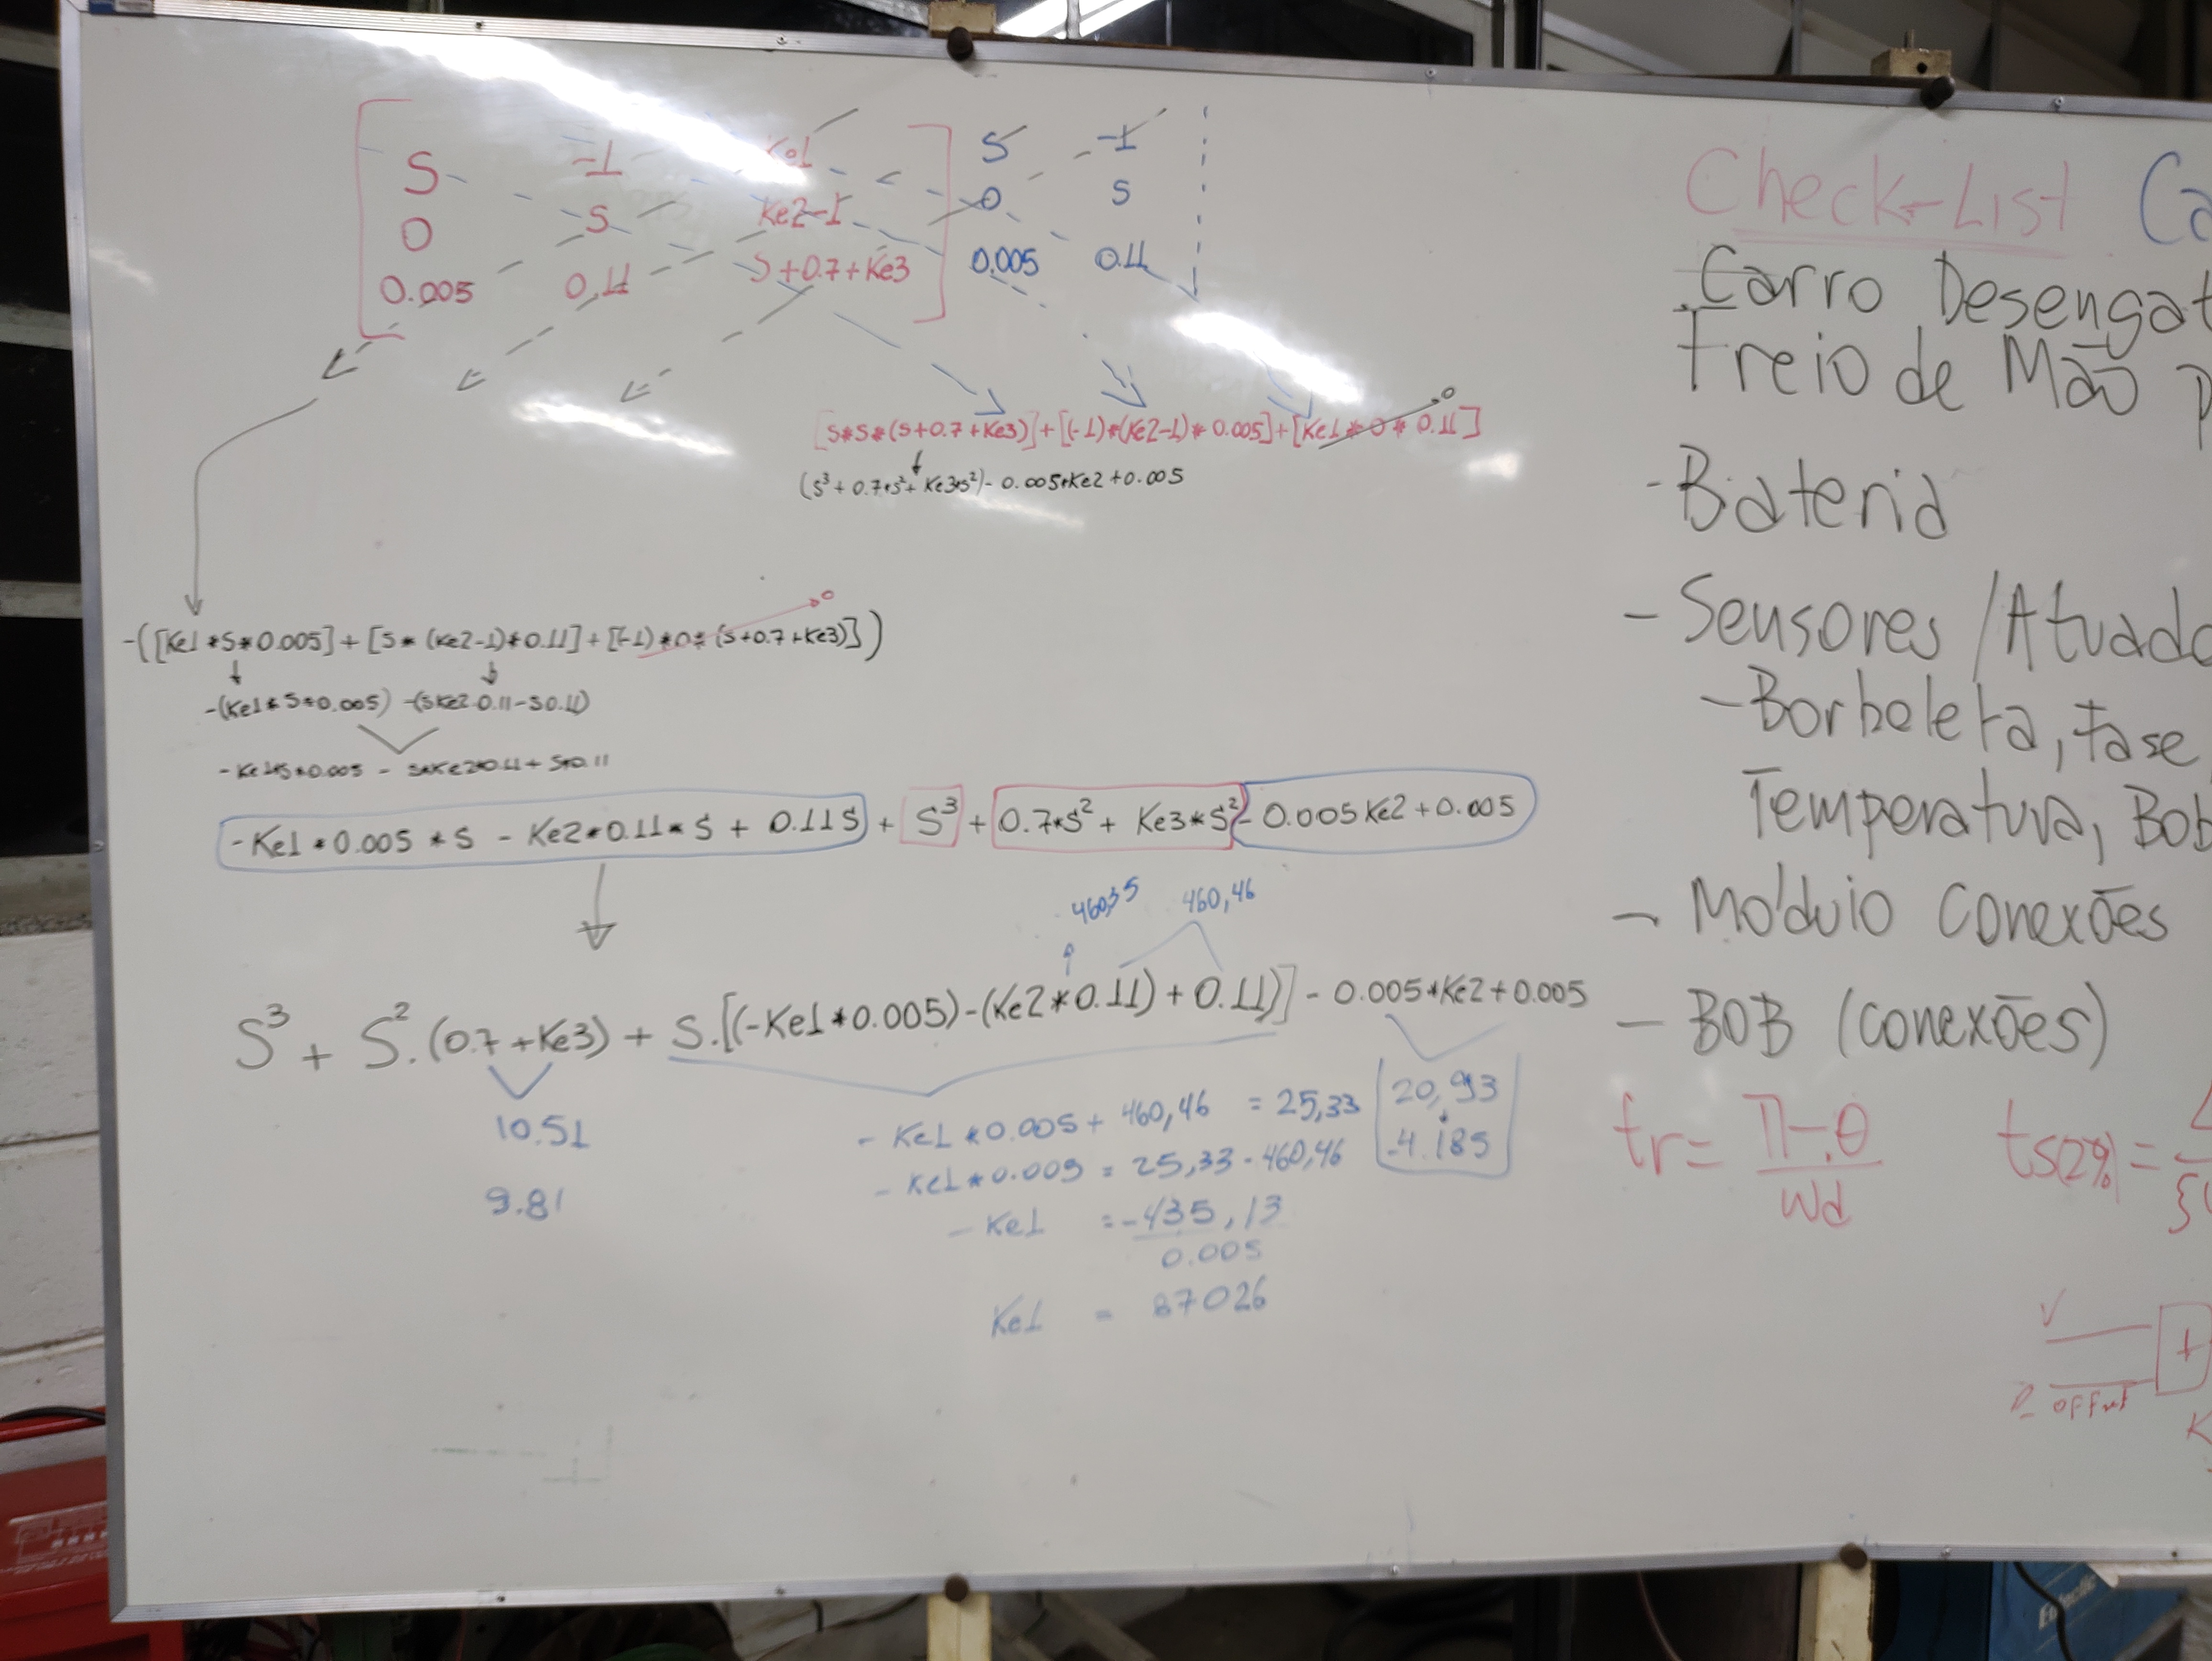 S -1 Ke1 S -1
0 S Ke2-1 0 S
0.005 0.11 S+0.7+Ke3 0.005 0.11
[S*S*(S+0.7+Ke3)]+[(-1)*(Ke2-1)*0.005]+[Ke1*0*0.11] 0
(S³+0.7*S²+Ke3*S²)-0.005*Ke2+0.005
-([Ke1*S*0.005]+[S*(Ke2-1)*0.11]+[(-1)*0*(S+0.7+Ke3)]) 0
-(Ke1*S*0.005) -(SKe2·0.11-S0.11)
-Ke1*S*0.005 - S*Ke2*0.11+S*0.11
-Ke1*0.005*S - Ke2*0.11*S + 0.11S + S³ + 0.7*S² + Ke3*S² - 0.005Ke2+0.005
460,35 460,46
S³ + S².(0.7+Ke3) + S.[(-Ke1*0.005)-(Ke2*0.11)+0.11)] - 0.005*Ke2+0.005
10.51
9.81
- Ke1*0.005 + 460,46 = 25,33
- Ke1*0.005 = 25,33-460,46
- Ke1 = -435,13
0.005
Ke1 = 87026
20,93
-4.185
Check-List
Carro Desengat
Freio de Mão
- Bateria
- Sensores /Atuado
- Borboleta, fase
Temperatura, Bob
- Módulo Conexões
- BOB (conexões)
tr= π-θ
wd
ts(2%)=
V
offset
+
K